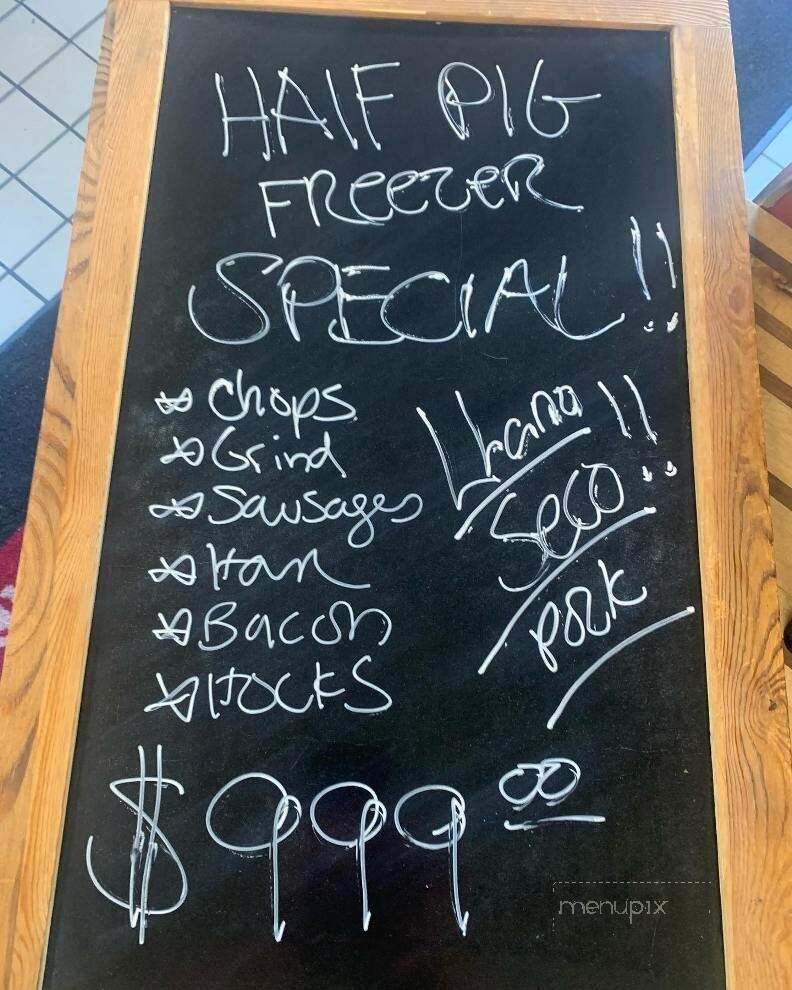 HALF PIG
FREEZER
SPECIAL!!
* Chops
* Grind
* Sausages
* Ham
* Bacon
* HOCKS
Llano!!
Seco
PORK
$999.00
menupix